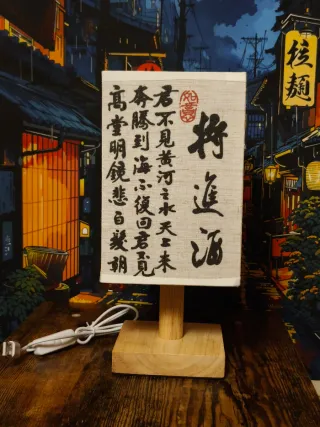 将進酒
如意
君不見黄河之水天上来
奔騰到海不復回君不見
高堂明鏡悲白髮朝
拉麺